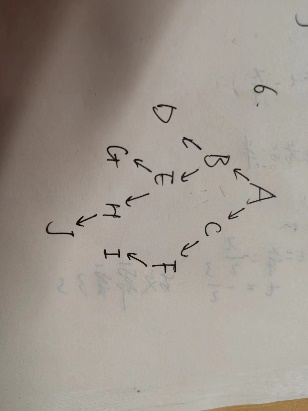 6. A
B C
D E F
G H I
J